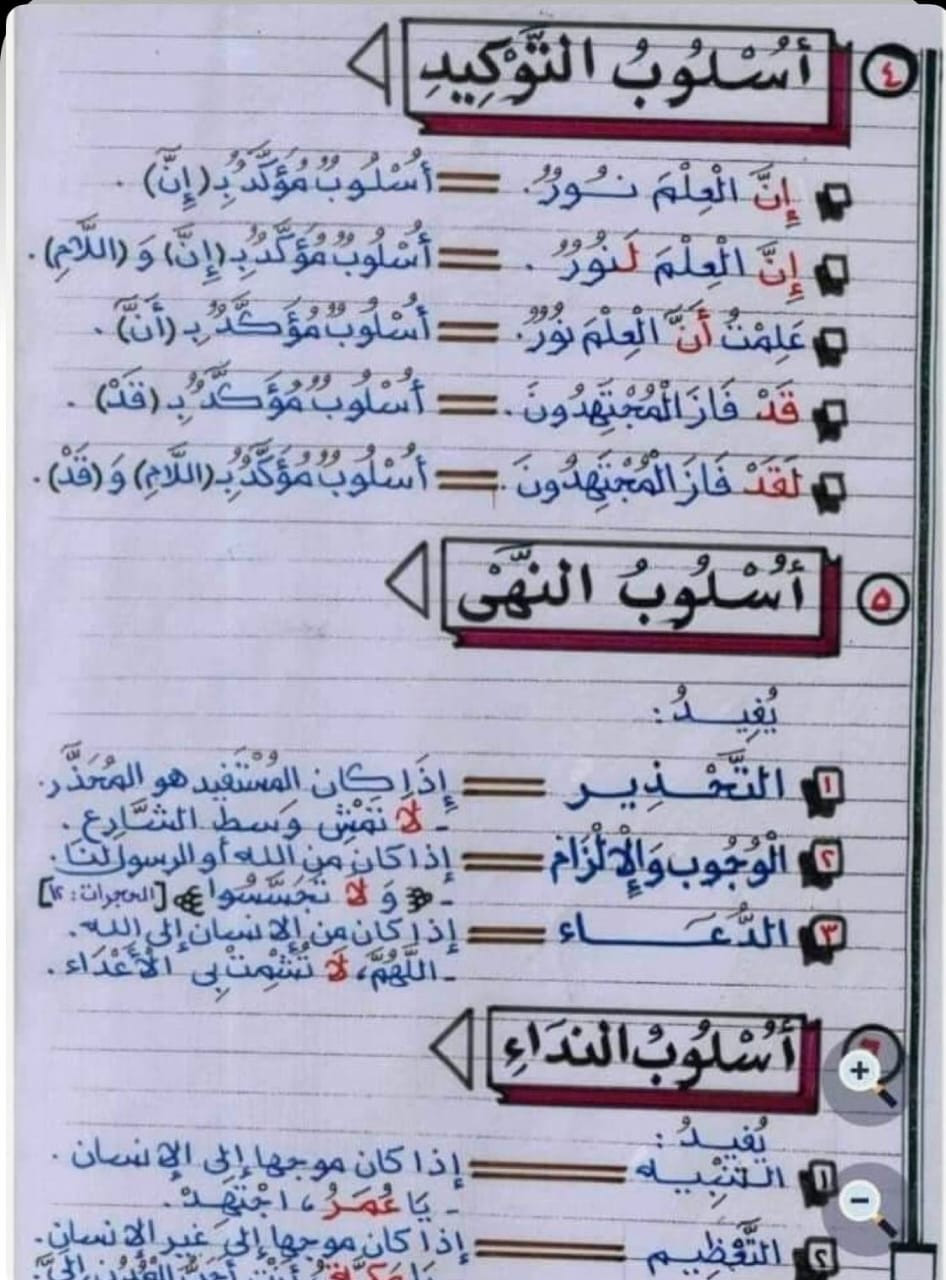 ٤ أُسْلُوبُ التَّوْكِيدِ
إِنَّ الْعِلْمَ نُورٌ. = أُسْلُوبٌ مُؤَكَّدٌ بِـ (إِنَّ).
إِنَّ الْعِلْمَ لَنُورٌ. = أُسْلُوبٌ مُؤَكَّدٌ بِـ (إِنَّ) وَ (اللَّامِ).
عَلِمْتُ أَنَّ الْعِلْمَ نُورٌ. = أُسْلُوبٌ مُؤَكَّدٌ بِـ (أَنَّ).
قَدْ فَازَ الْمُجْتَهِدُونَ. = أُسْلُوبٌ مُؤَكَّدٌ بِـ (قَدْ).
لَقَدْ فَازَ الْمُجْتَهِدُونَ. = أُسْلُوبٌ مُؤَكَّدٌ بِـ (اللَّامِ) وَ (قَدْ).
٥ أُسْلُوبُ النَّهْىِ
يُفِيدُ :
١ التَّحْذِير = إِذَا كان المُسْتَفِيد هو المُحَذَّر.
- لَا تَمْشِ وَسط الشَّارِع.
٢ الْوُجُوبِ وَالْإِلْزَام = إذا كان من الله أو الرسول لنا.
- ﴿ وَ لَا تَجَسَّسُوا ﴾ [الحجرات: ١٢]
٣ الدُّعَاء = إذا كان من الإنسان إلى الله.
- اللَّهُمَّ، لَا تُشْمِتْ بِى الْأَعْدَاء.
أُسْلُوبُ النِّدَاءِ
يُفيدُ :
١ التنبيه = إذا كان موجها إلى الإنسان.
- يَا عُمَرُ، اجْتَهِدْ.
٢ التَّعْظِيم = إذا كان موجها إلى غير الإنسان.